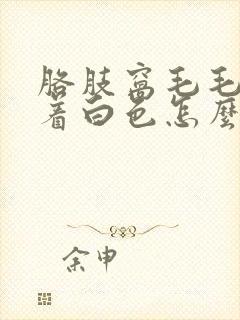 胳肢窝毛毛
着白色怎麼
余申